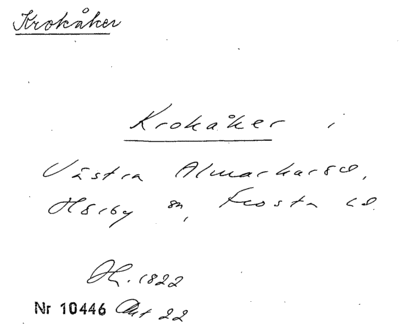 Krokåker
Krokåker i
Västra Almarkaröd,
Hörby sn, Frosta hd
H. 1822
Nr 10446 Akt 22